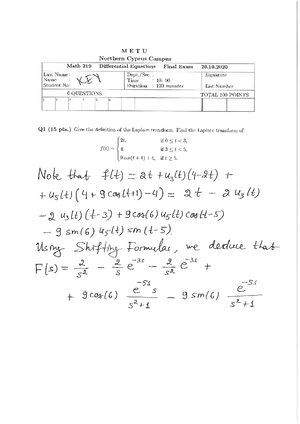 M E T U
Northern Cyprus Campus
Math 219 Differential Equations Final Exam 20.10.2020
Last Name: Dept./Sec.: Signature
Name : KEY Time : 13:00
Student No Duration : 120 minutes List Number
6 QUESTIONS TOTAL 100 POINTS
Q1 (15 pts.) Give the definition of the Laplace transform. Find the Laplace transform of
f(t) = { 2t, if 0 ≤ t < 3,
4, if 3 ≤ t < 5,
9 cos(t + 1) + 4, if t ≥ 5.
Note that f(t) = 2t + u₃(t)(4-2t) +
+ u₅(t)(4 + 9cos(t+1) - 4) = 2t - 2u₃(t)
- 2u₃(t)(t-3) + 9cos(6)u₅(t)cos(t-5)
- 9sm(6)u₅(t)sm(t-5).
Using Shifting Formulas, we deduce that
F(s) = 2/s² - 2/s e^-3s - 2/s² e^-3s +
+ 9cos(6) e^-5s s/(s²+1) - 9sm(6) e^-5s/(s²+1)